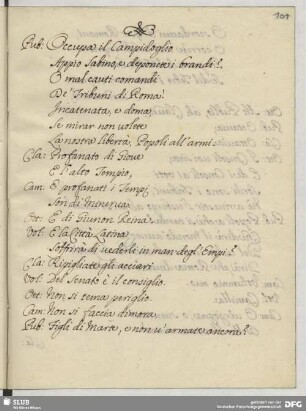 101
Pub: Occupa il Campidoglio
Appio Sabino, e deponete i brandi?
O mal cauti comandi
De' Tribuni di Roma!
Incatenata, e doma,
Se mirar non volete
La nostra libertà, Popoli all'armi.
Cla: Profanato di Giove
E l'alto Tempio,
Cam: E profanati i Tempi,
Son di Minerva
Ott: E di Giunon Reina.
Vol: E la Città Latina
Soffrirà di vederli in man degl'Empi?
Cla: Ripigliate gli acciari
Vol: Del Senato è il consiglio.
Ott: Non si tema periglio.
Cam: Non si faccia dimora.
Pub: Figli di Marte, e non v'armate ancora?
SLUB
Wir führen Wissen.
gefördert von der
Deutschen Forschungsgemeinschaft
DFG